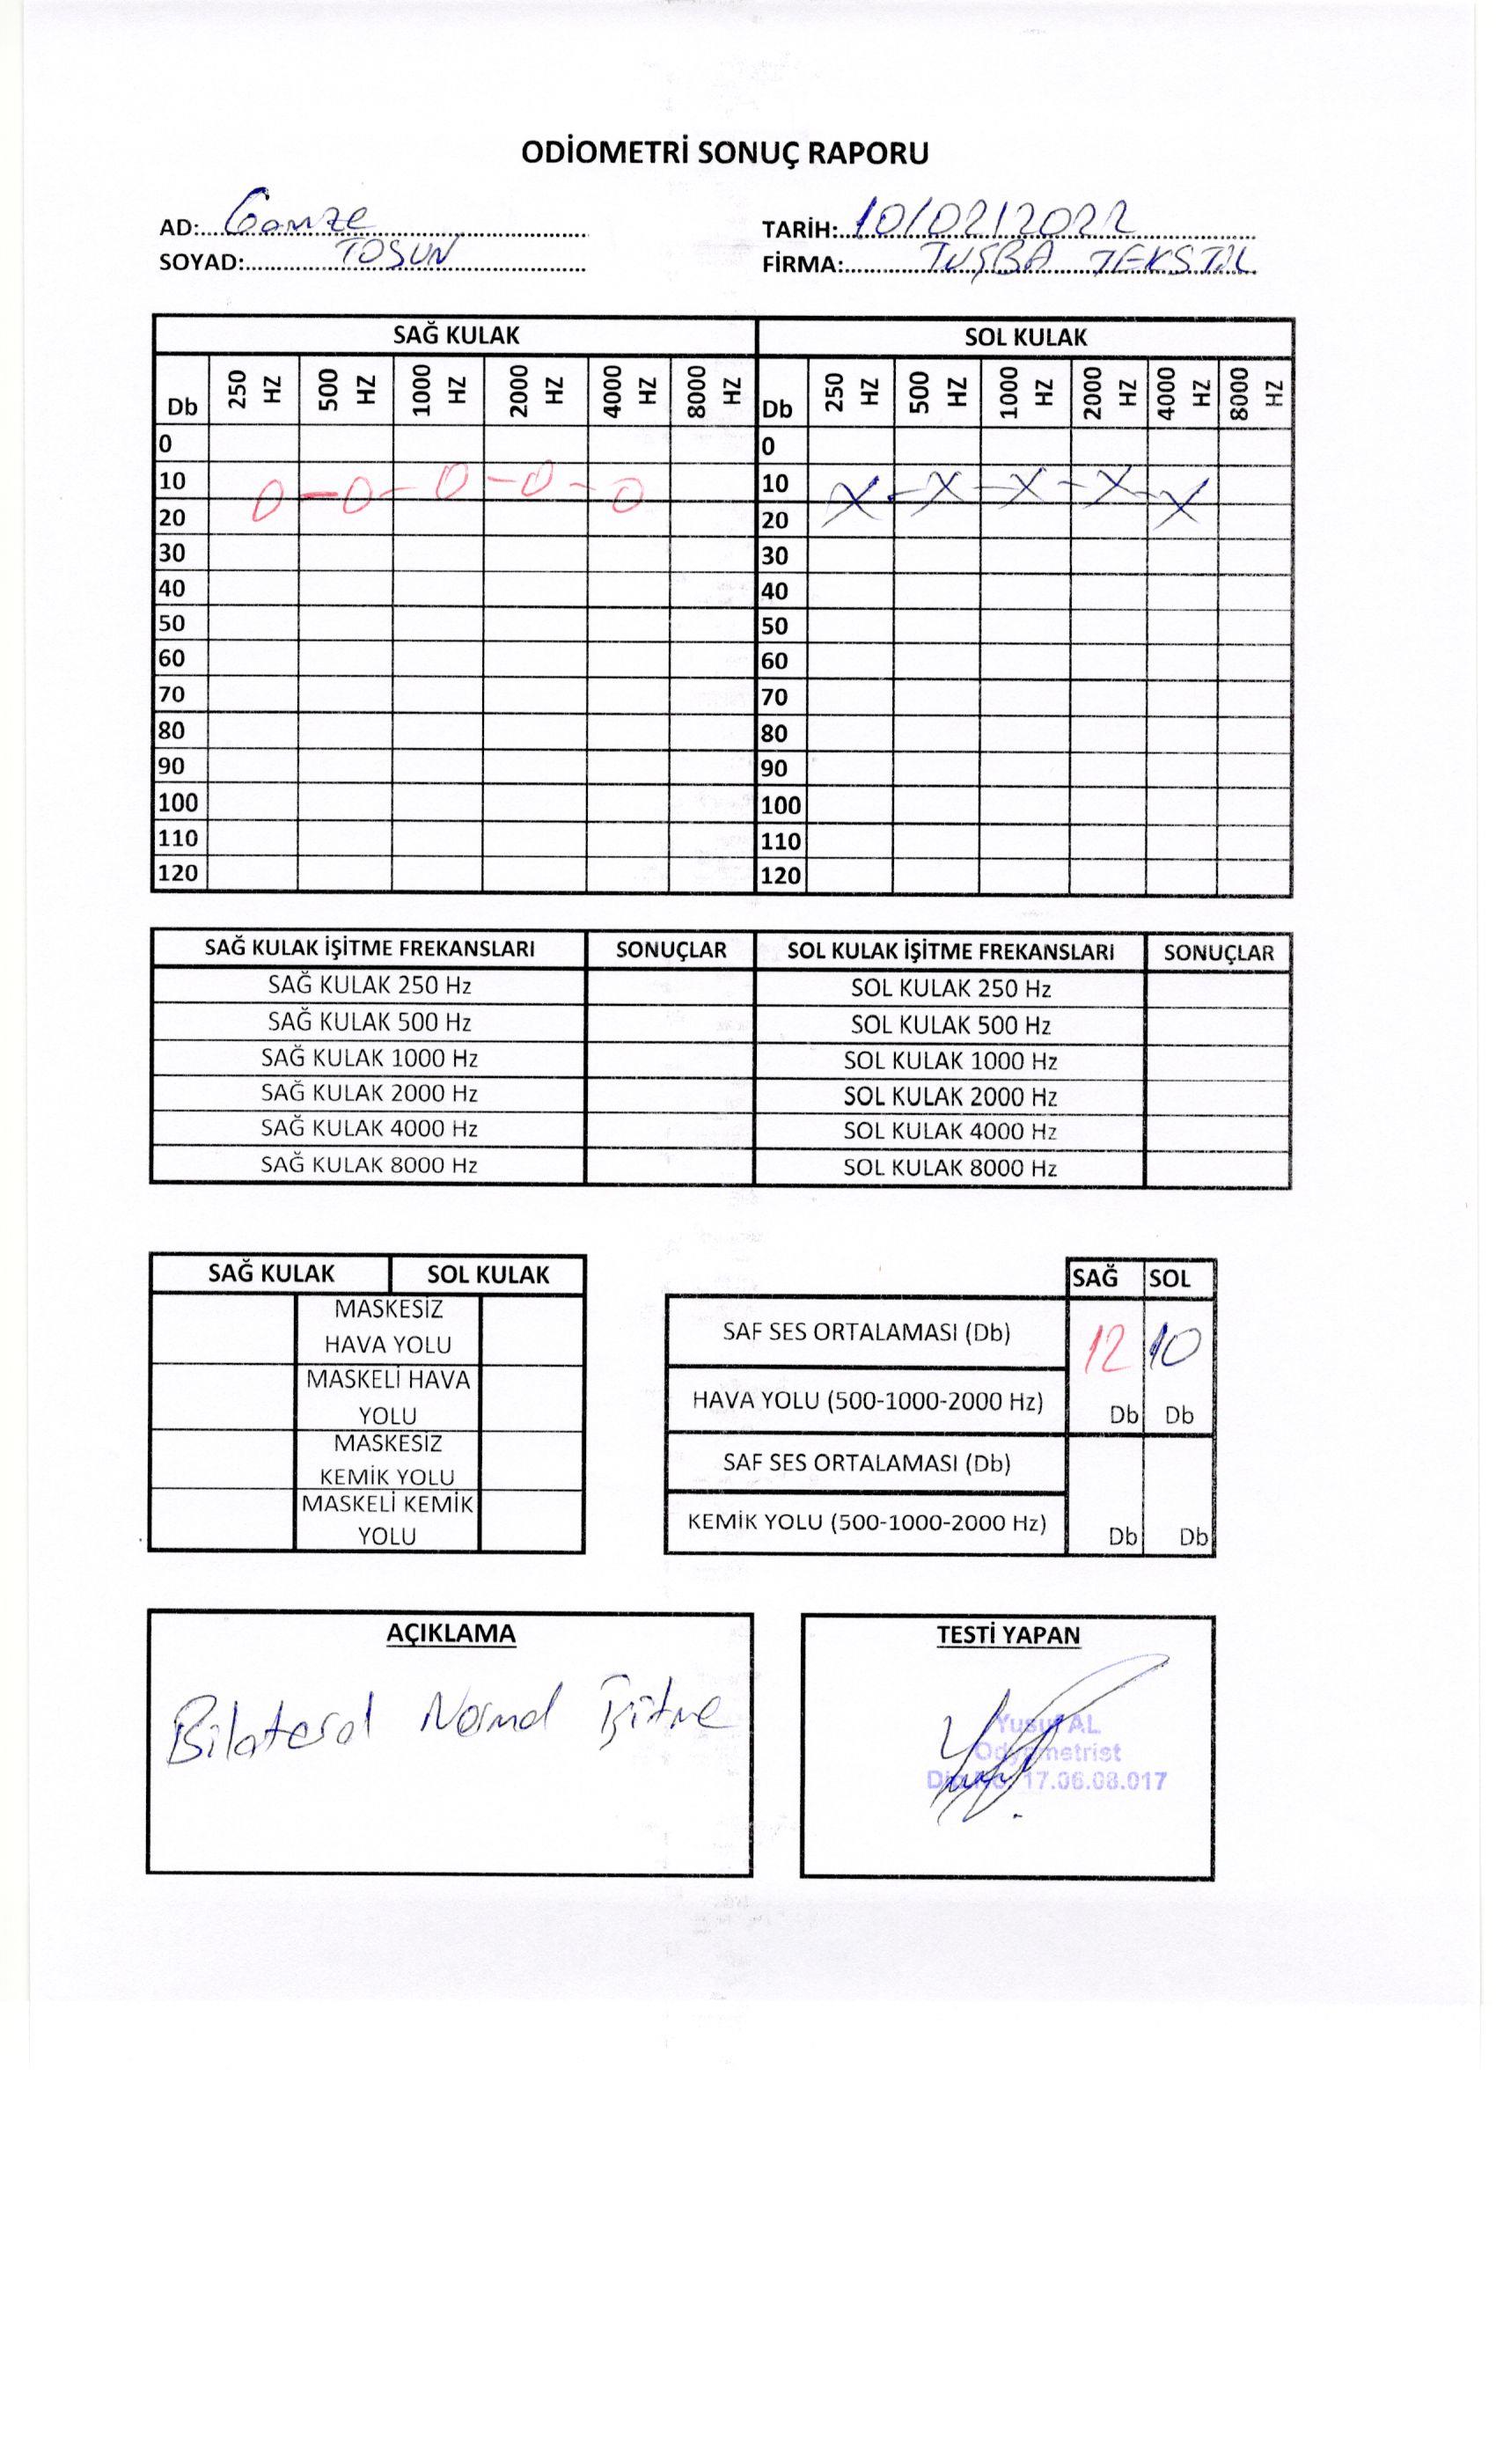 ODİOMETRİ SONUÇ RAPORU
AD: Gamze TARİH: 10/02/2022
SOYAD: TOSUN FİRMA: TUŞBA TEKSTİL
SAĞ KULAK SOL KULAK
Db 250 HZ 500 HZ 1000 HZ 2000 HZ 4000 HZ 8000 HZ Db 250 HZ 500 HZ 1000 HZ 2000 HZ 4000 HZ 8000 HZ
0 0
10 O-O-O-O-O 10 X-X-X-X-X
20 20
30 30
40 40
50 50
60 60
70 70
80 80
90 90
100 100
110 110
120 120
SAĞ KULAK İŞİTME FREKANSLARI SONUÇLAR SOL KULAK İŞİTME FREKANSLARI SONUÇLAR
SAĞ KULAK 250 Hz SOL KULAK 250 Hz
SAĞ KULAK 500 Hz SOL KULAK 500 Hz
SAĞ KULAK 1000 Hz SOL KULAK 1000 Hz
SAĞ KULAK 2000 Hz SOL KULAK 2000 Hz
SAĞ KULAK 4000 Hz SOL KULAK 4000 Hz
SAĞ KULAK 8000 Hz SOL KULAK 8000 Hz
SAĞ KULAK SOL KULAK
MASKESİZ
HAVA YOLU
MASKELİ HAVA
YOLU
MASKESİZ
KEMİK YOLU
MASKELİ KEMİK
YOLU
SAĞ SOL
SAF SES ORTALAMASI (Db) 12 10
HAVA YOLU (500-1000-2000 Hz) Db Db
SAF SES ORTALAMASI (Db)
KEMİK YOLU (500-1000-2000 Hz) Db Db
AÇIKLAMA
Bilateral Normal İşitme
TESTİ YAPAN
Yusuf AL
Odyometrist
Dip.No: 17.06.08.017